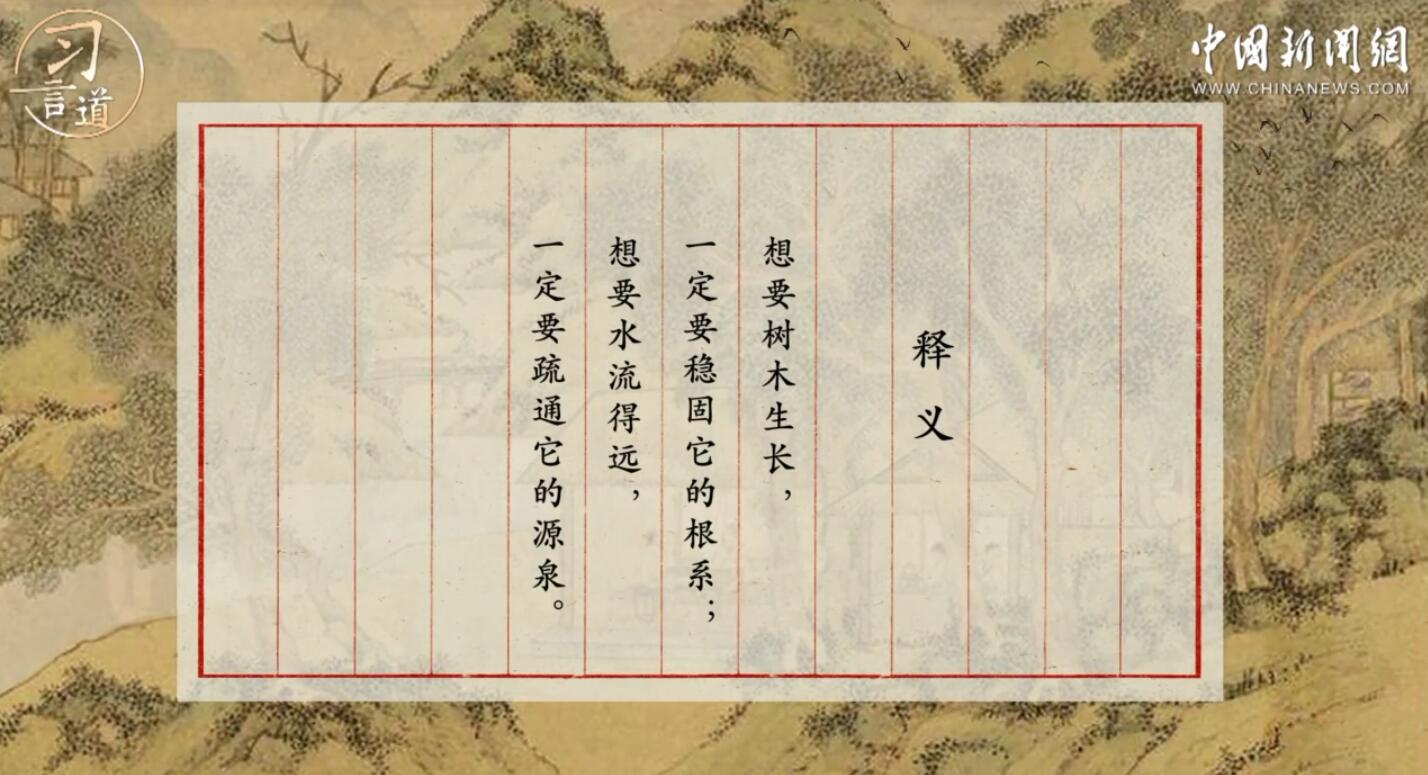 习言道
中国新闻网
WWW.CHINANEWS.COM
释义
想要树木生长，
一定要稳固它的根系；
想要水流得远，
一定要疏通它的源泉。